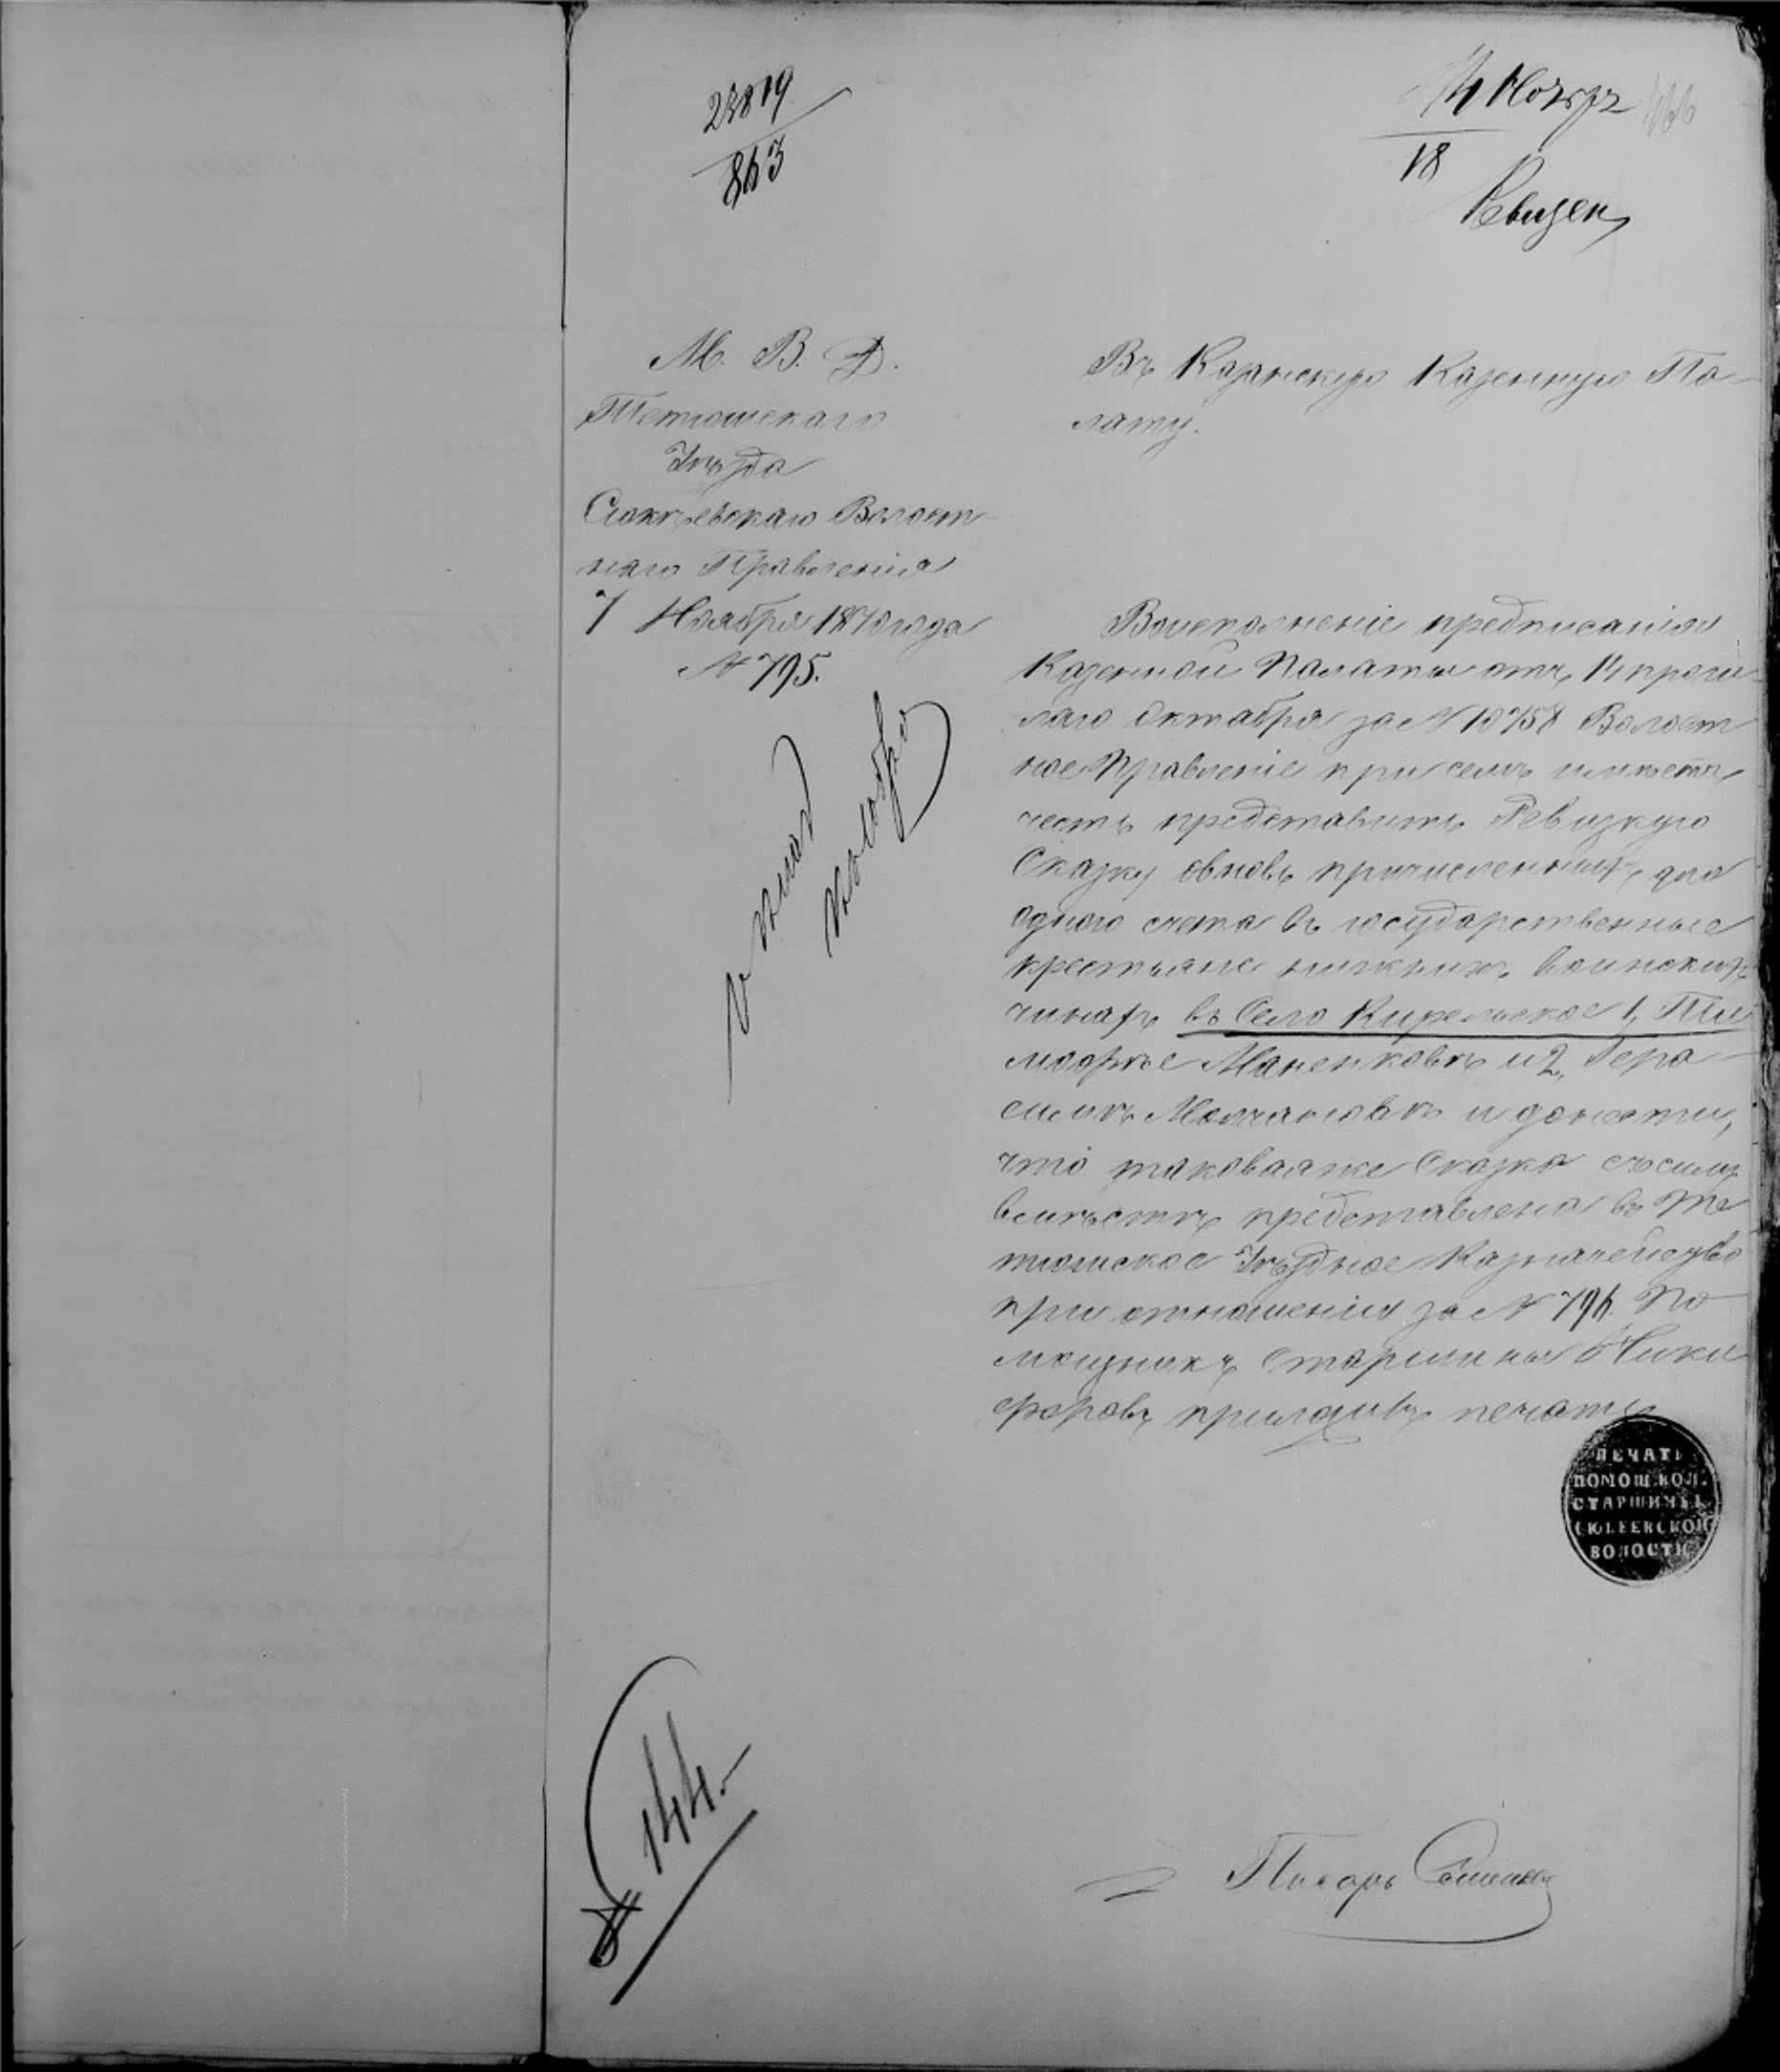 23819
863
14 Ноябр
18
М. В. Д.
Тетюшскаго
Уѣзда
Сюкѣевскаго Волост
наго Правленія
7 Ноября 1870 года
№ 795.
Въ Казанскую Казенную Па-
лату.
Воисполненіе предписанія
Казенной Палаты отъ 14 прош
лаго Октября за № 10758 Волост
ное Правленіе при семъ имѣетъ
честь представить Ревизкую
Сказку овновь причисленныхъ для
одного счета въ государственные
крестьяне нижнихъ воинскихъ
чинахъ въ Село Кирельское 1, Ти
мофѣе Маненковѣ и 2, Гера-
симѣ Молчановѣ и донести,
что таковаяже Сказка съсимъ
вмѣстѣ представлена въ Те
тюшское Уѣздное Казначейство
при отношеніи за № 796. По
мощникъ Старшины Ники
форовъ приложилъ печать
ПЕЧАТЬ
ПОМОЩ. ВОЛ.
СТАРШИНЫ
СЮКЕЕВСКОЙ
ВОЛОСТИ
144
Писарь